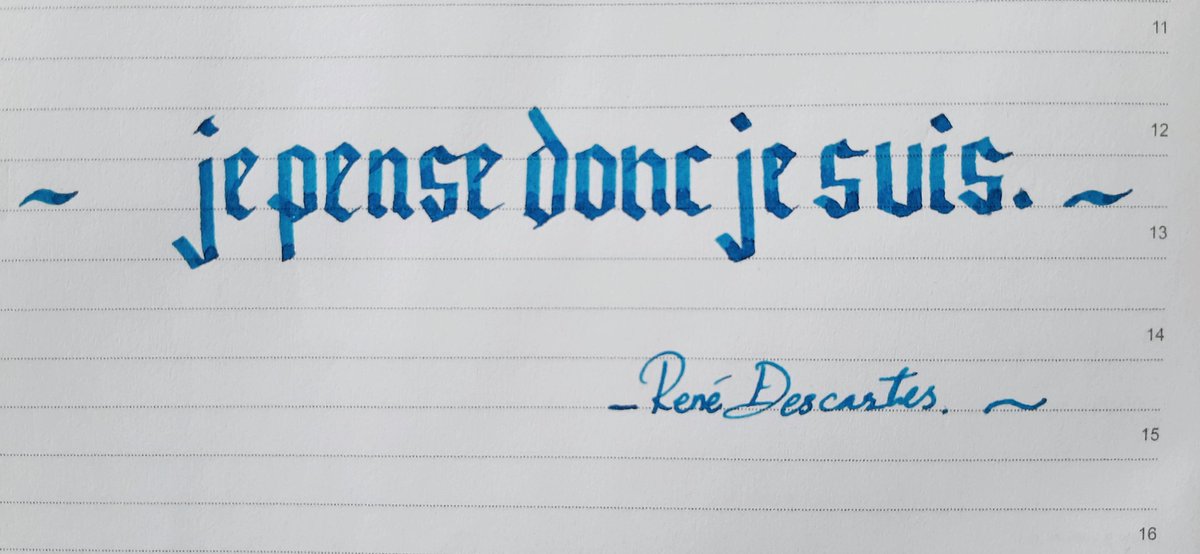 11
12
~ je pense donc je suis. ~
13
14
- René Descartes. ~
15
16